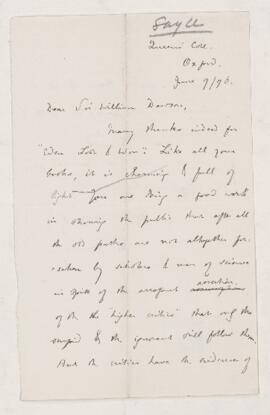 Sayce
Queens' Coll.
Oxford.
June 9/96.
Dear Sir William Dawson,
Many thanks indeed for
"Eden Lost & Won". Like all your
books, it is charming & full of
light and you are doing a good work
in showing the public that after all
the old paths are not altogether for-
-saken by scholars & men of science
in spite of the arrogant assertion
of the "higher critics" that only the
stupid & the ignorant still follow them.
And the critics have the evidence of